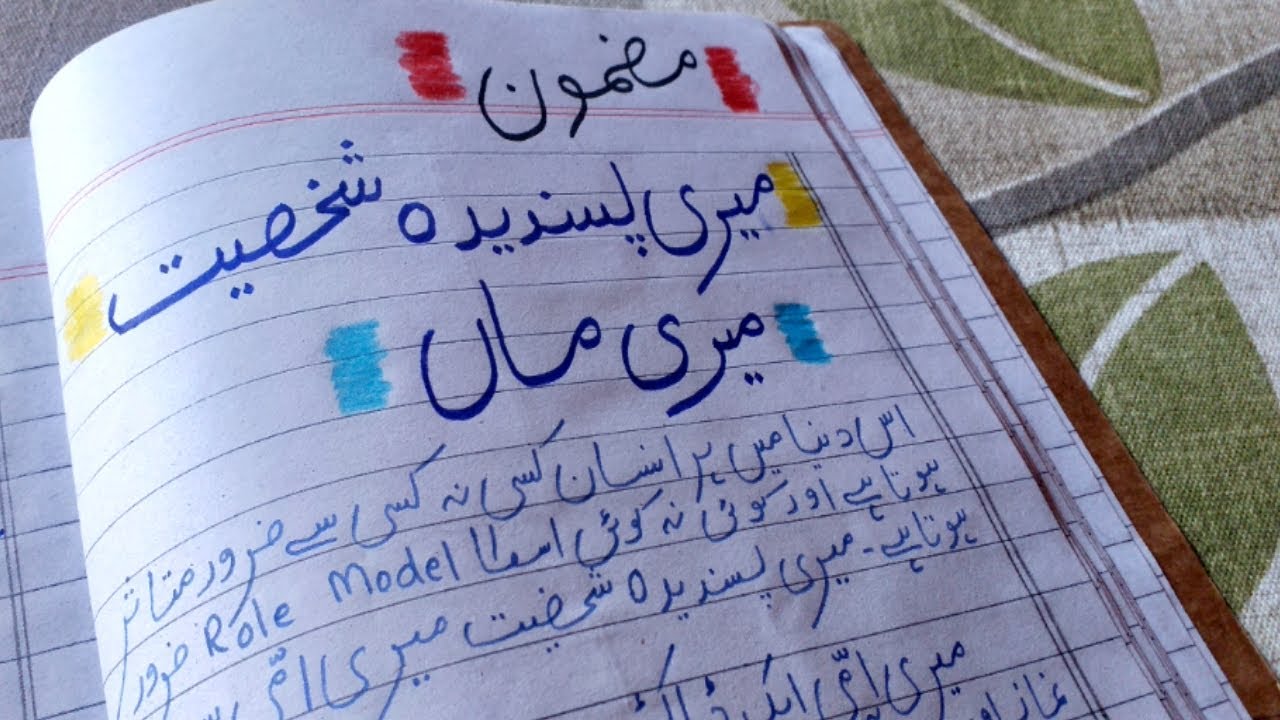 مضمون
میری پسندیدہ شخصیت
میری ماں
اس دینا میں ہر انسان کسی نہ کسی سے ضرور متاثر
ہوتا ہے اور کوئی نہ کوئی اسکا Role Model ضرور
ہوتا ہے۔ میری پسندیدہ شخصیت میری امّی
میری امّی ایک ڈاکٹر
نماز اور